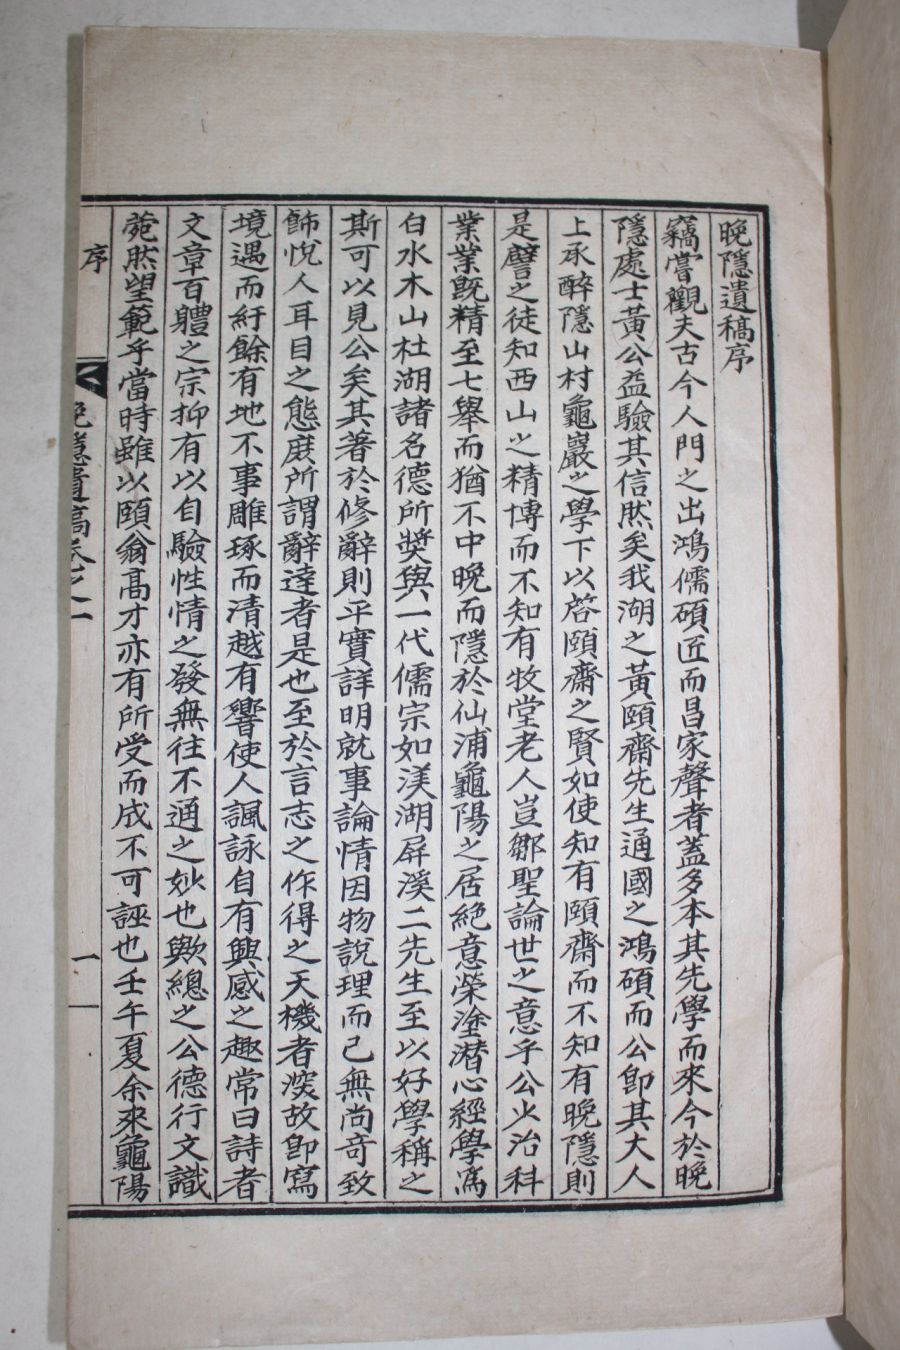 晩隱遺稿序
竊嘗觀夫古今人門之出鴻儒碩匠而昌家聲者蓋多本其先學而來今於晩
隱處士黃公益驗其信然矣我湖之黃頤齋先生通國之鴻碩而公卽其大人
上承醉隱山村龜巖之學下以啓頤齋之賢如使知有頤齋而不知有晩隱則
是譬之徒知西山之精博而不知有牧堂老人豈鄒聖論世之意乎公少治科
業業旣精至七舉而猶不中晩而隱於仙浦龜陽之居絶意榮塗潛心經學爲
白水木山杜湖諸名德所奬與一代儒宗如渼湖屛溪二先生至以好學稱之
斯可以見公矣其著於修辭則平實詳明就事論情因物說理而已無尚奇致
飾悅人耳目之態度所謂辭達者是也至於言志之作得之天機者深故卽寫
境遇而紆餘有地不事雕琢而清越有響使人諷詠自有興感之趣常曰詩者
文章百體之宗抑有以自驗性情之發無往不通之妙也歟總之公德行文識
菀然望範乎當時雖以頤翁高才亦有所受而成不可誣也壬午夏余來龜陽
序
晩隱遺稿卷之一
一